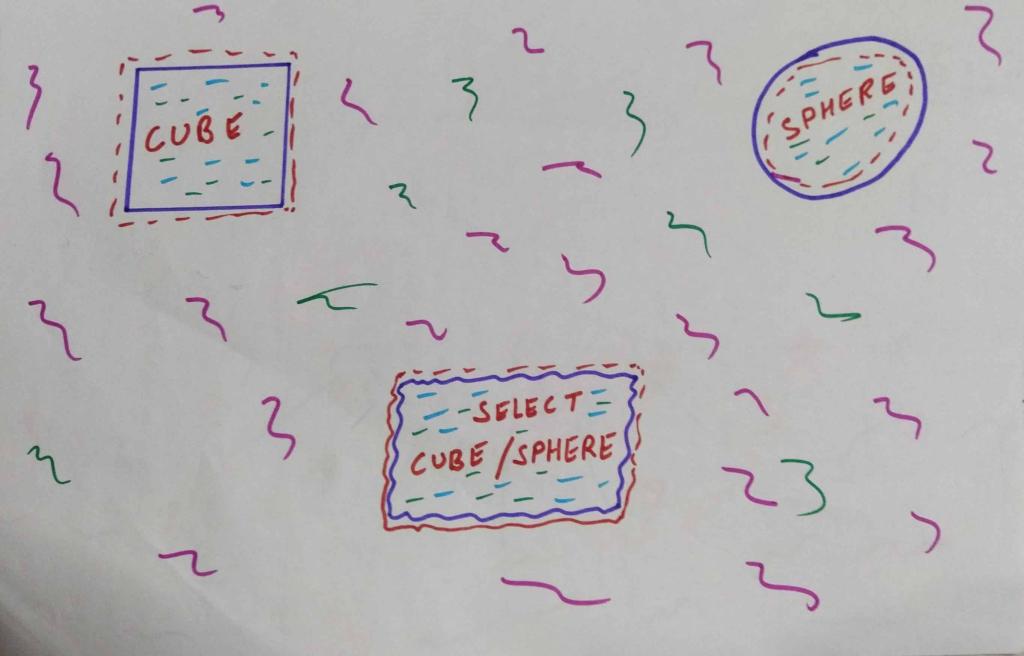 CUBE
SPHERE
SELECT
CUBE/SPHERE